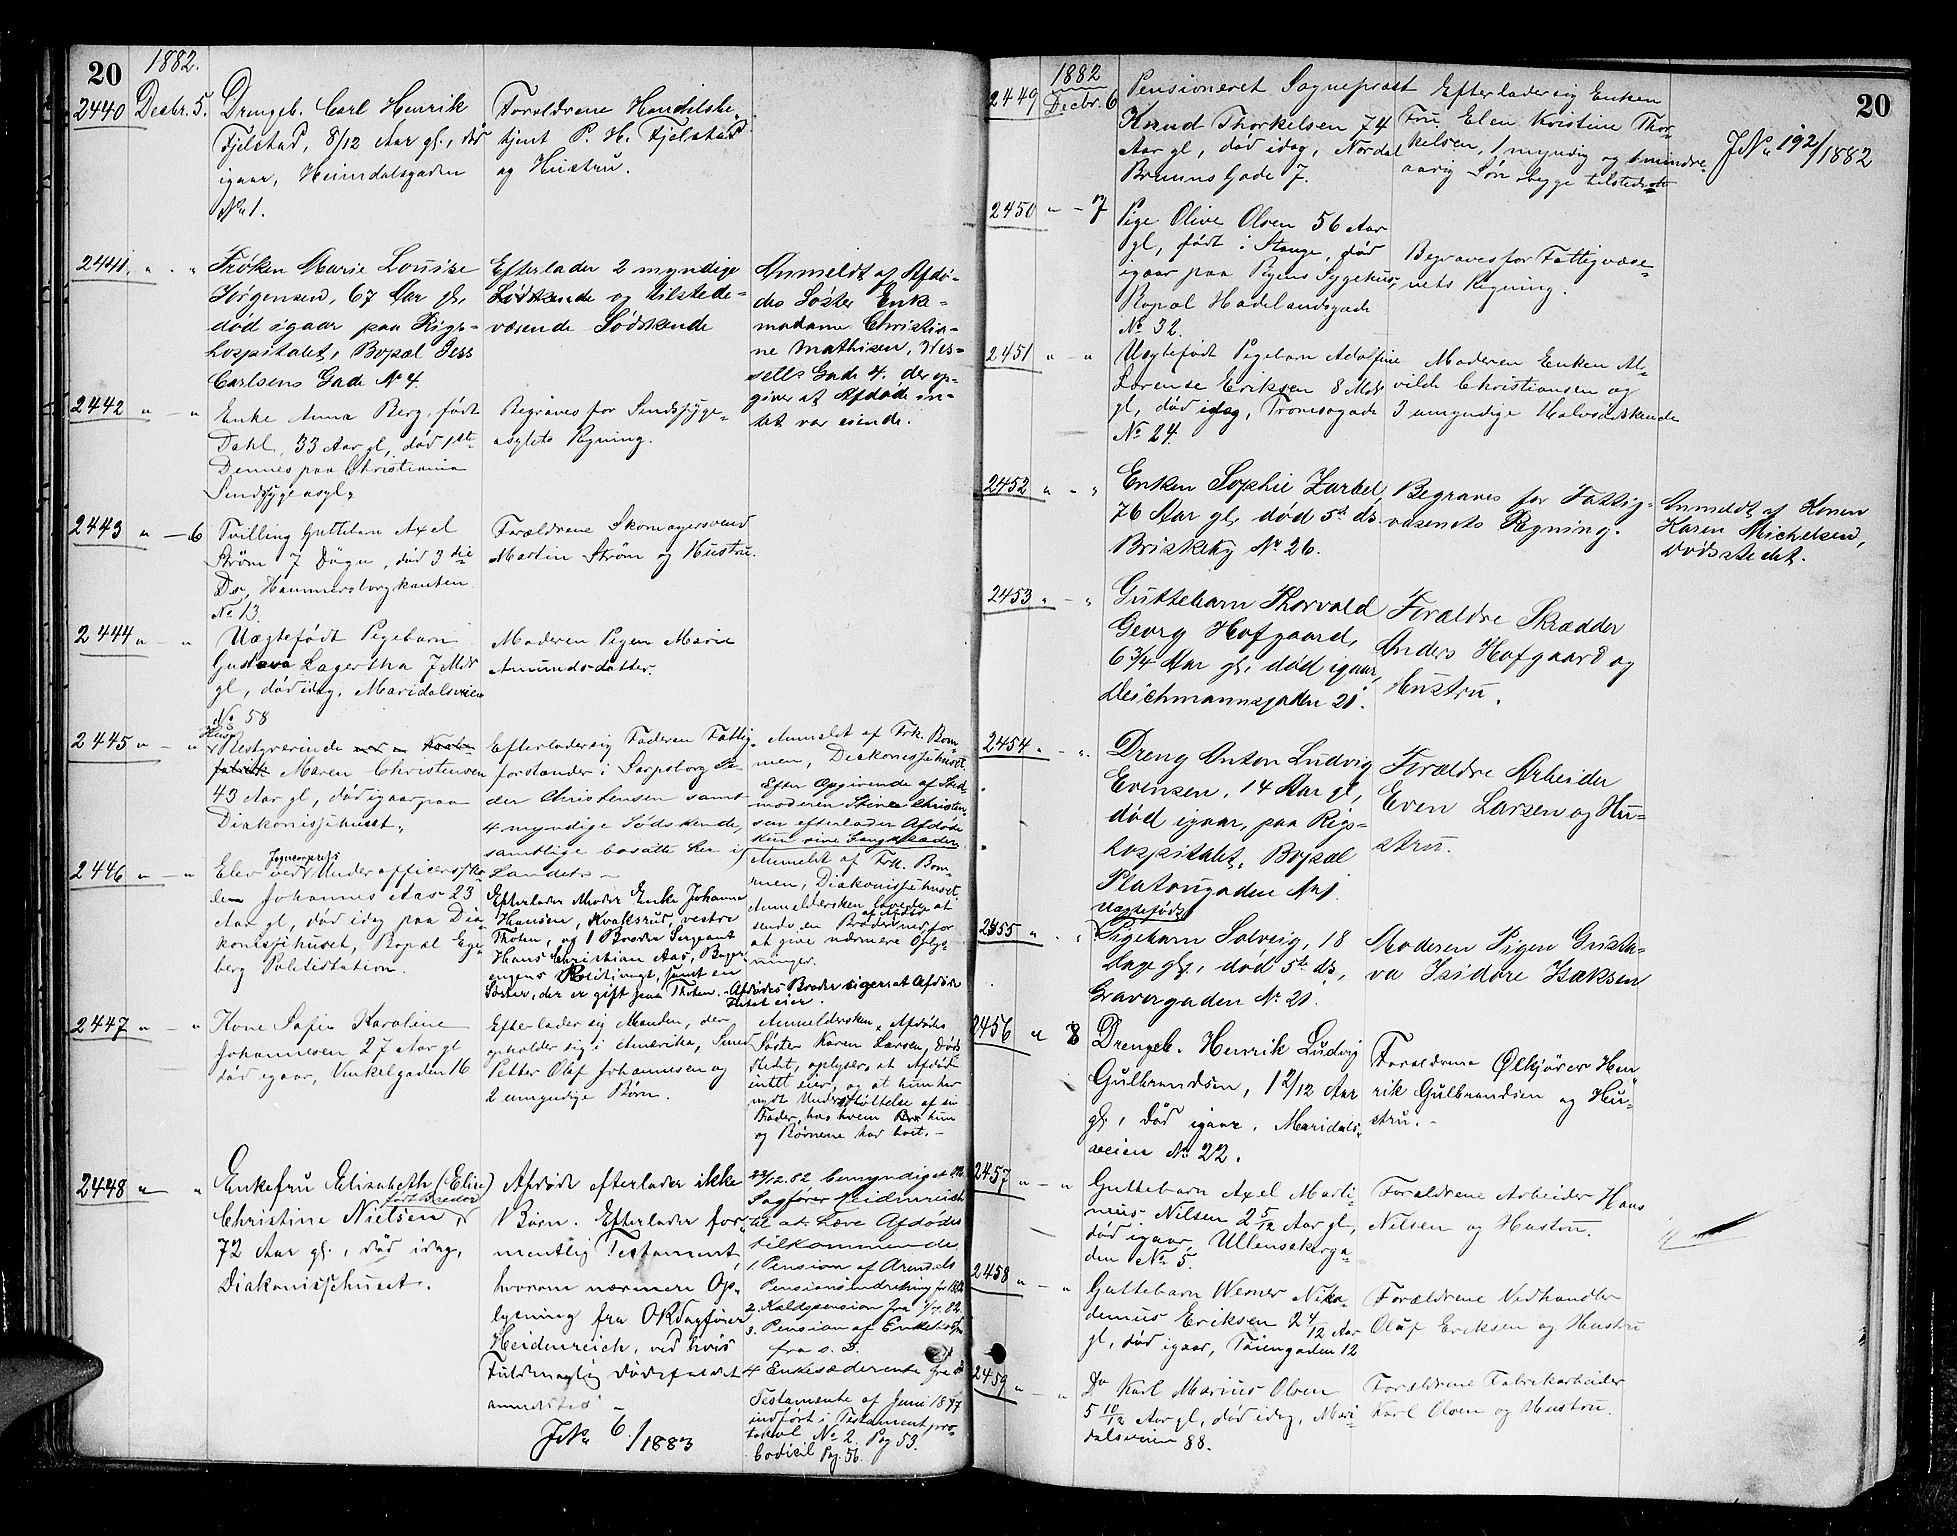 20
1882.
2440 Decbr. 5. Drengeb. Carl Henrik
Fjelstad, 8/12 Aar gl., død
igaar, Heimdalsgaden
No 1.
Forældrene Handelsbe„
tjent P. H. Fjelstad
og Hustru.
2441 „ - „ Frøken Marie Louise
Jørgensen, 67 Aar gl.
død igaar paa Rigs-
hospitalet, Bopæl Jess
Carlsens Gade No 4.
Efterlader 2 myndige
Sødskende og tilstede-
værende Sødskende
Anmeldt af Afdø-
des Søster Enke-
madame Christia-
ne Mathisen, Wes-
sells Gade 4. der op-
giver at Afdøde in-
tet var eiende.
2442 „ - „ Enke Anna Berg, født
Dahl, 33 Aar gl, død 1ste
Dennes paa Christiania
Sindssygeasyl„
Begraves for Sindssyge-
asylets Regning.
2443 „ - 6 Tvilling Guttebarn Axel
Strøm 7 Døgn, død 3die
Ds, Hammersborgkanten
No 13.
Forældrene Skomagersvend
Martin Strøm og Hustru.
2444 „ - „ Uægtefødt Pigebarn
Gustava Lagertha 7 Mdr
gl, død idag, Maridalsveien
No 58
Moderen Pigen Marie
Amundsdatter.
2445 „ - „ Husbestyrerinde
Maren Christensen
43 Aar gl, død igaar paa
Diakonissehuset„
Efterlader sig Faderen Fattig„
forstander i Sarpsborg Pe-
der Christensen samt
4 myndige Sødskende,
samtlige bosatte her i
Landet. -
Anmeldt af Frk. Bom-
men, Diakonissehuset.
Efter Opgivende af Sted-
moderen Stine Christen-
sen efterlader Afdøde
kun sine Gangklæder
2446 „ - „ Elev ved Jegercorpsets Underofficersko-
len Johannes Aas 23
Aar gl, død idag paa Dia„
konissehuset, Bopæl Ege„
berg Politistation.
Efterlader Moder Enke Johanne
Hansen, Kvalsrud, vestre
Thoten, og 1 Broder Sergeant
Hans Christian Aas,
Politivagt, samt en
Søster, der er gift paa Thoten.
Anmeldt af Frk. Bom-
men, Diakonissehuset.
Anmeldersken lovede at
sende en Broder af Afdøde ned for
at give nærmere Oplys-
ninger.
Afdødes Broder siger at Afdøde
Intet eier.
2447 „ - „ Kone Sofie Karoline
Johannesen 27 Aar gl
død igaar, Vinkelgaden 16
Efterlader sig Manden, der
opholder sig i Amerika, Smed
Petter Olaf Johannesen og
2 umyndige Børn.
Anmeldersken, Afdødes
Søster Karen Larsen, Døds-
stedet, oplyser, at Afdøde
intet eier, og at hun har
nydt Understøttelse af sin
Fader, hos hvem hun
og Børnene har boet. -
2448 „ „ Enkefru Elisabeth (Elise)
Christine Nielsen, født Breder
72 Aar gl., død idag,
Diakonissehuset.
Afdøde efterlader ikke
Børn. Efterlader for„
mentlig Testament,
hvorom nærmere Op„
lysning fra ORSagfører
Heidenreich, ved hvis
Fuldmægtig Dødsfaldet
anmeldtes -
JNo 6/1883
23/12.82 bemyndiget OR
Sagfører Heidenreich
til at hæve Afdødes
tilkommende
1. Pension af Arendals
Pensionsindretning for 1882
2. Kaldspension fra 1/7 82.
3. Pension af Enkekassen
fra s. D.
4 Enkesæderente fra
Testamente af Juni 1877
indført i Testamentpro-
tokol No 2. Pag 53.
Codicil Pag. 56.
20
1882
2449 Decbr. 6 Pensioneret Sogneprest
Knud Thorkelsen 74
Aar gl, død idag, Nordal
Bruuns Gade 7.
Efterlader sig Enken
Fru. Elen Kristine Thor-
kelsen, 1 myndig og 1 mindre-
aarig Søn begge tilstede
JNo 192/1882
2450 „ - 7 Pige Olive Olsen 56 Aar
gl, født i Stange, død
igaar paa Byens Sygehus,
Bopæl Hadelandsgade
No 32.
Begraves for Fattigvæse-
nets Regning.
2451 „ - „ Uægtefødt Pigebarn Adolfine
Lorense Eriksen 8 Mdr
gl, død idag, Tromsøgade
No 24.
Moderen Enken Al-
vilde Christiansen og
3 umyndige Halvsødskende
2452 „ - „ Enken Sophie Zarbel,
76 Aar gl, død 5te ds.
Briskeby No 26.
Begraves for Fattig-
væsenets Regning.
Anmeldt af Konen
Karen Michelsen,
Dødsstedet.
2453 „ - „ Guttebarn Thorvald
Georg Hofgaard,
6 3/4 Aar gl, død igaar,
Deichmannsgaden 21.
Forældre Skrædder
Anders Hofgaard og
Hustru.
2454 „ - „ Dreng Anton Ludvig
Evensen, 14 Aar gl,
død igaar, paa Rigs-
hospitalet. Bopæl
Platousgaden No 1
Forældre Arbeider
Even Larsen og Hu-
stru.
2455 „ - „ Uægtefødt
Pigebarn Solveig, 18
Dage gl., død 5te ds,
Gravergaden No 21.
Moderen Pigen Gusta-
va Isidore Isaksen
2456 „ 8 Drengeb. Henrik Ludvig
Gulbrandsen, 1 2/12 Aar
gl., død igaar, Maridals-
veien No 22.
Forældrene Ølkjører Hen„
rik Gulbrandsen og Hu-
stru. -
2457 „ - „ Guttebarn Axel Marti-
nius Nilsen 2 5/12 Aar gl,
død igaar, Ullensakerga-
den No 5.
Forældrene Arbeider Hans
Nilsen og Hustru.
2458 „ - „ Guttebarn Werner Niko-
demus Eriksen 2 4/12 Aar
gl, død igaar, Tøiengaden 12
Forældrene Vedhandler
Oluf Eriksen og Hustru
2459 „ - „ Do Karl Marius Olsen
5 10/12 Aar gl, død idag, Mari-
dalsveien 88.
Forældrene Fabrikarbeider
Karl Olsen og Hustru.